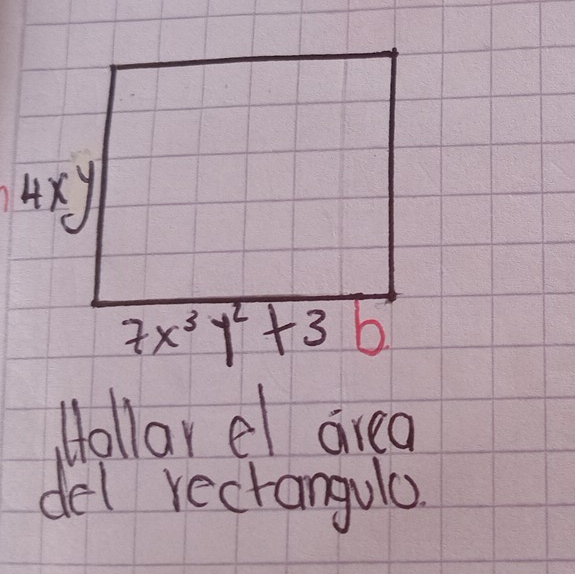 4xy
7x³y² + 3 b
Hallar el área
del rectangulo.